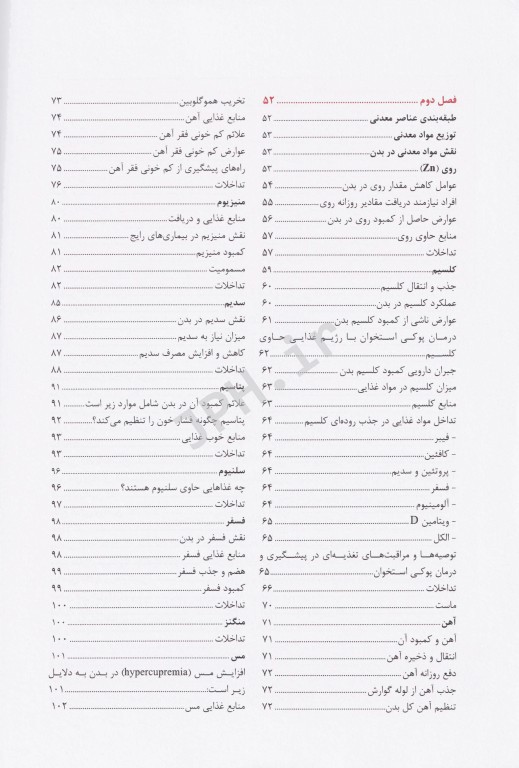 فصل دوم ........ ۵۲
طبقه‌بندی عناصر معدنی ........ ۵۲
توزیع مواد معدنی ........ ۵۳
نقش مواد معدنی در بدن ........ ۵۳
روی (Zn) ........ ۵۳
عوامل کاهش مقدار روی در بدن ........ ۵۴
افراد نیازمند دریافت مقادیر روزانه روی ........ ۵۵
عوارض حاصل از کمبود روی در بدن ........ ۵۶
منابع حاوی روی ........ ۵۷
تداخلات ........ ۵۷
کلسیم ........ ۵۹
جذب و انتقال کلسیم ........ ۶۰
عملکرد کلسیم در بدن ........ ۶۰
عوارض ناشی از کمبود کلسیم بدن ........ ۶۱
درمان پوکی استخوان با رژیم غذایی حاوی
کلسیم ........ ۶۲
جبران دارویی کمبود کلسیم بدن ........ ۶۲
میزان کلسیم در مواد غذایی ........ ۶۳
منابع کلسیم ........ ۶۳
تداخل مواد غذایی در جذب روده‌ای کلسیم ........ ۶۴
- فیبر ........ ۶۴
- کافئین ........ ۶۴
- پروتئین و سدیم ........ ۶۴
- فسفر ........ ۶۴
- آلومینیوم ........ ۶۴
- ویتامین D ........ ۶۵
- الکل ........ ۶۵
توصیه‌ها و مراقبت‌های تغذیه‌ای در پیشگیری و
درمان پوکی استخوان ........ ۶۵
تداخلات ........ ۶۶
ماست ........ ۷۰
آهن ........ ۷۱
آهن و کمبود آن ........ ۷۱
انتقال و ذخیره آهن ........ ۷۱
دفع روزانه آهن ........ ۷۲
جذب آهن از لوله گوارش ........ ۷۲
تنظیم آهن کل بدن ........ ۷۲
تخریب هموگلوبین ........ ۷۳
منابع غذایی آهن ........ ۷۴
علائم کم خونی فقر آهن ........ ۷۴
عوارض کم خونی فقر آهن ........ ۷۵
راه‌های پیشگیری از کم خونی فقر آهن ........ ۷۵
تداخلات ........ ۷۶
منیزیوم ........ ۸۰
منابع غذایی و دریافت ........ ۸۰
نقش منیزیم در بیماری‌های رایج ........ ۸۱
کمبود منیزیم ........ ۸۱
مسمومیت ........ ۸۲
تداخلات ........ ۸۲
سدیم ........ ۸۵
نقش سدیم در بدن ........ ۸۶
میزان نیاز به سدیم ........ ۸۷
کاهش و افزایش مصرف سدیم ........ ۸۷
تداخلات ........ ۸۸
پتاسیم ........ ۹۱
علائم کمبود آن در بدن شامل موارد زیر است ........ ۹۱
پتاسیم چگونه فشار خون را تنظیم می‌کند؟ ........ ۹۲
منابع خوب غذایی ........ ۹۳
تداخلات ........ ۹۳
سلنیوم ........ ۹۶
چه غذاهایی حاوی سلنیوم هستند؟ ........ ۹۶
تداخلات ........ ۹۷
فسفر ........ ۹۸
نقش فسفر در بدن ........ ۹۸
منابع غذایی فسفر ........ ۹۸
هضم و جذب فسفر ........ ۹۹
کمبود فسفر ........ ۹۹
تداخلات ........ ۱۰۰
منگنز ........ ۱۰۰
تداخلات ........ ۱۰۰
مس ........ ۱۰۱
افزایش مس (hypercupremia) در بدن به دلایل
زیر است: ........ ۱۰۱
منابع غذایی مس ........ ۱۰۲
JPH.ir